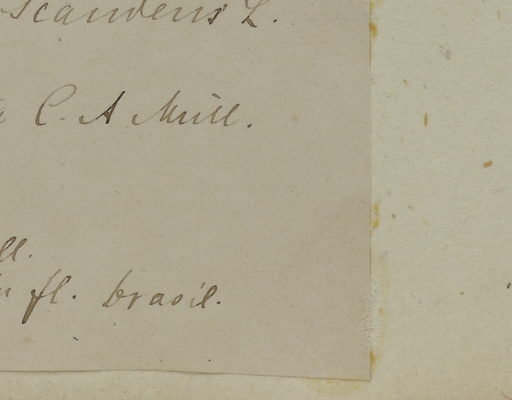 scandens L.
C. A Müll.
ll.
fl. brasil.